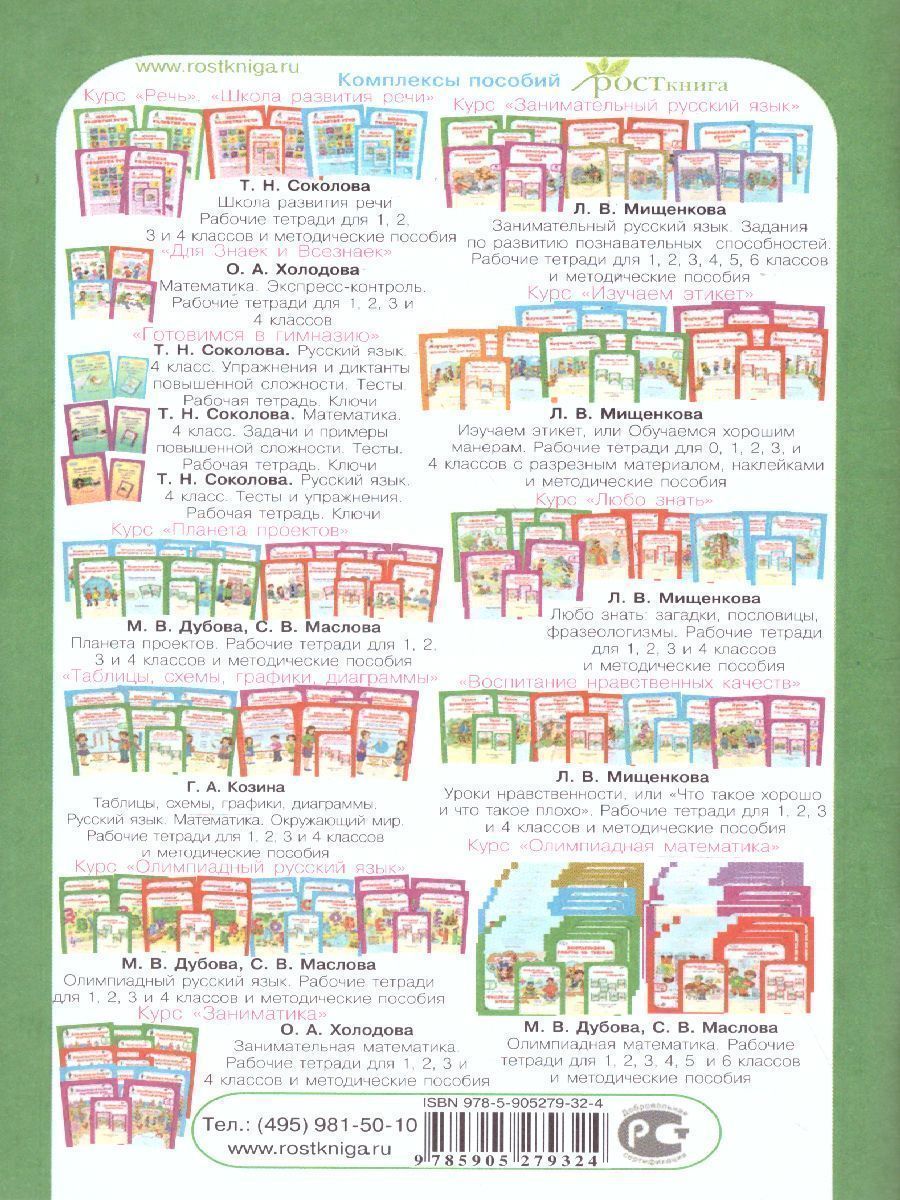 www.rostkniga.ru
Комплексы пособий
РОСТкнига
Курс «Речь», «Школа развития речи»
Т. Н. Соколова
Школа развития речи
Рабочие тетради для 1, 2,
3 и 4 классов и методические пособия
«Для Знаек и Всезнаек»
О. А. Холодова
Математика. Экспресс-контроль.
Рабочие тетради для 1, 2, 3 и
4 классов
«Готовимся в гимназию»
Т. Н. Соколова. Русский язык.
4 класс. Упражнения и диктанты
повышенной сложности. Тесты.
Рабочая тетрадь. Ключи
Т. Н. Соколова. Математика.
4 класс. Задачи и примеры
повышенной сложности. Тесты.
Рабочая тетрадь. Ключи
Т. Н. Соколова. Русский язык.
4 класс. Тесты и упражнения.
Рабочая тетрадь. Ключи
Курс «Планета проектов»
М. В. Дубова, С. В. Маслова
Планета проектов. Рабочие тетради для 1, 2,
3 и 4 классов и методические пособия
«Таблицы, схемы, графики, диаграммы»
Г. А. Козина
Таблицы, схемы, графики, диаграммы.
Русский язык. Математика. Окружающий мир.
Рабочие тетради для 1, 2, 3 и 4 классов
и методические пособия
Курс «Олимпиадный русский язык»
М. В. Дубова, С. В. Маслова
Олимпиадный русский язык. Рабочие тетради
для 1, 2, 3 и 4 классов и методические пособия
Курс «Заниматика»
О. А. Холодова
Занимательная математика.
Рабочие тетради для 1, 2, 3 и
4 классов и методические пособия
Курс «Занимательный русский язык»
Л. В. Мищенкова
Занимательный русский язык. Задания
по развитию познавательных способностей.
Рабочие тетради для 1, 2, 3, 4, 5, 6 классов
и методические пособия
Курс «Изучаем этикет»
Л. В. Мищенкова
Изучаем этикет, или Обучаемся хорошим
манерам. Рабочие тетради для 0, 1, 2, 3, и
4 классов с разрезным материалом, наклейками
и методические пособия
Курс «Любо знать»
Л. В. Мищенкова
Любо знать: загадки, пословицы,
фразеологизмы. Рабочие тетради
для 1, 2, 3 и 4 классов
и методические пособия
«Воспитание нравственных качеств»
Л. В. Мищенкова
Уроки нравственности, или «Что такое хорошо
и что такое плохо». Рабочие тетради для 1, 2, 3
и 4 классов и методические пособия
Курс «Олимпиадная математика»
М. В. Дубова, С. В. Маслова
Олимпиадная математика. Рабочие
тетради для 1, 2, 3, 4, 5 и 6 классов
и методические пособия
Тел.: (495) 981-50-10
www.rostkniga.ru
ISBN 978-5-905279-32-4
9 785905 279324
Добровольная
РСТ
сертификация